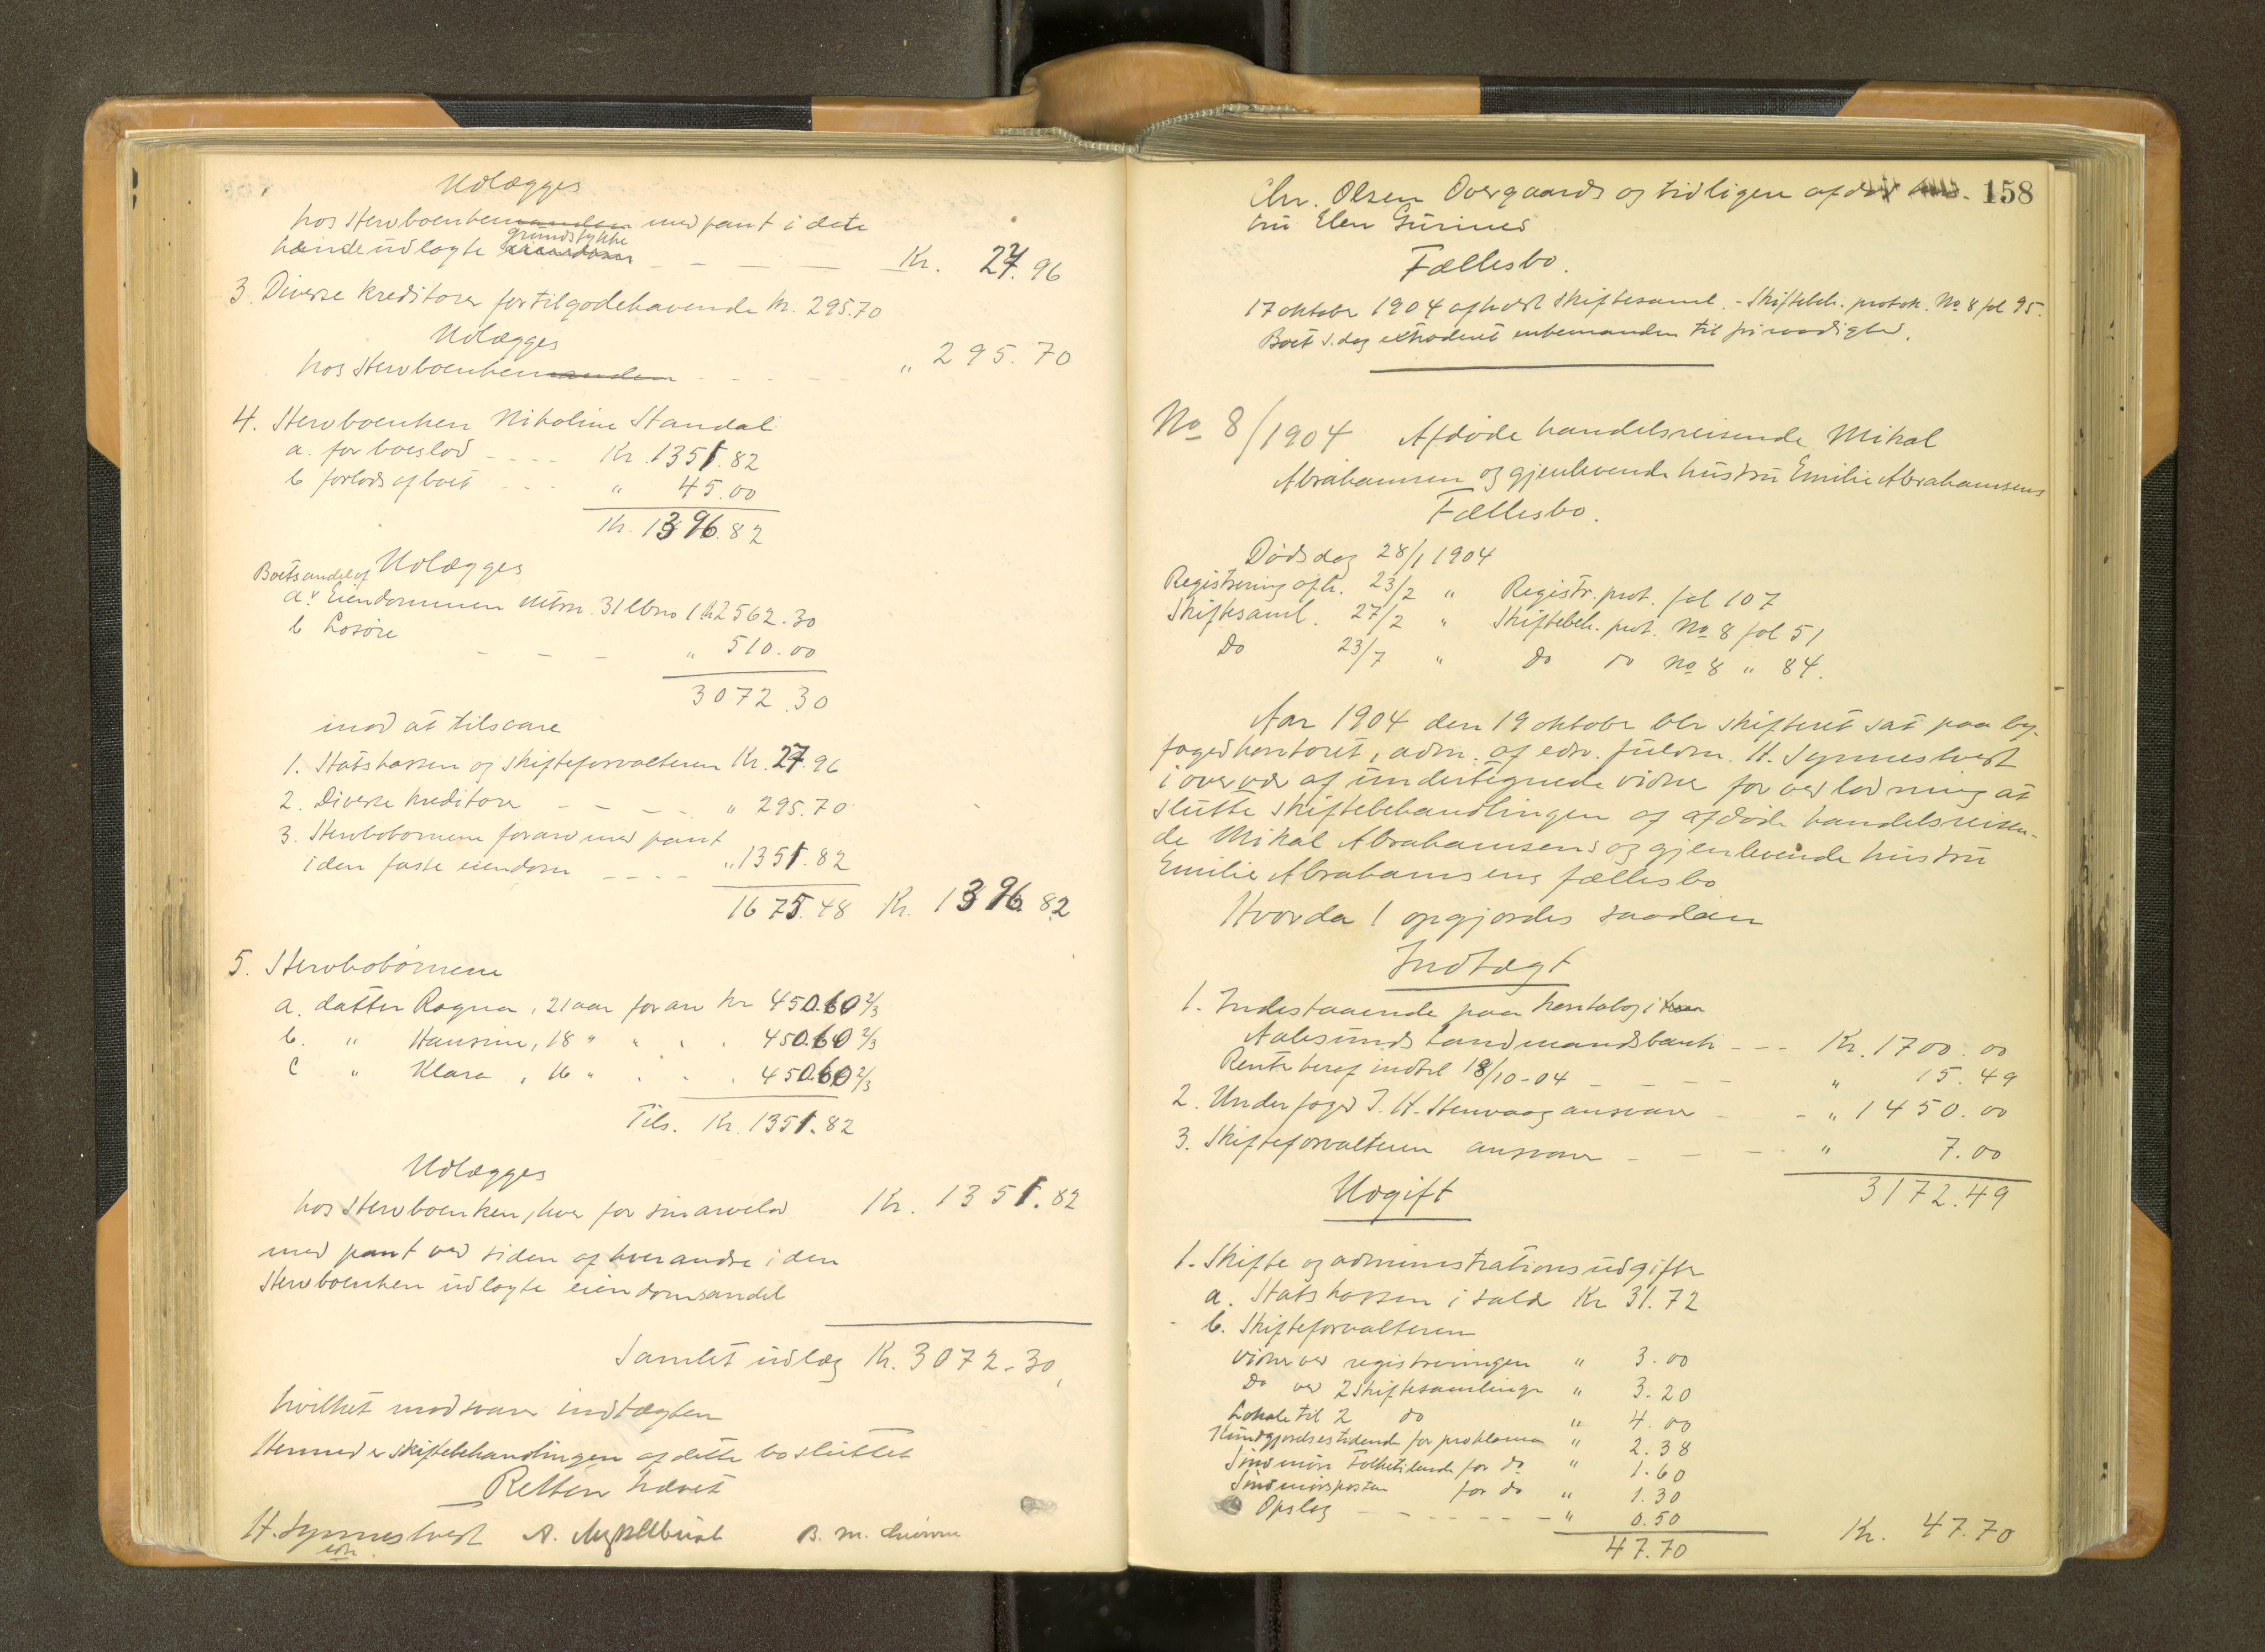 Udlægges
hos Stervboenken med pant i dete
hænde udlagte grundstykke — — — — Kr. 27.96
3. Diverse kreditorer for tilgodehavende kr. 295.70
Udlægges
hos Stervboenken - - - - " 295.70
4. Stervboenken Nikoline Standal
a. for boeslod - - - - Kr. 1351.82
b forlods af boet - - - " 45.00
Kr. 1396.82
Udlægges
Boets andel af
a. Eiendommen Mtrn. 31 lbno 1 K 2562.30
b Løsøre - - - " 510.00
3072.30
mod at tilsvare
1. Statskassen og skifteforvalteren Kr. 27.96
2. Diverse kreditorer - - - - " 295.70
3. Stervbobørnene for arv med pant
i den faste eiendom - - - - " 1351.82
1675.48 Kr. 1396.82
5. Stervbobørnene
a. datter Ragna, 21 aar for arv kr 450.60 2/3
b. " Hansine, 18 " " " . 450.60 2/3
c " Klara, 16 " . . . 450.60 2/3
Tils. Kr. 1351.82
Udlægges
hos Stervboenken, hver for sin arvelod Kr. 1351.82
med pant ved siden af hverandre i den
Stervboenken udlagte eiendomsandel
Samlet udlæg Kr. 3072.30,
hvilket modsvarer indtægten
Hermed er skiftebehandlingen af dette bo sluttet
Retten hævet
H. Synnestvedt A. B. M.
edv.
Chr. Olsen Overgaards og tidligere afdøde hus- 158
tru Elen Gurines
Fællesbo.
17 oktober 1904 afholdt skiftesaml. - Skiftebeh. protok. No 8 fol 95.
Boet s. dag extraderet enkemanden til fri raadighed.
No 8/1904 Afdøde handelsreisende Mikal
Abrahamsen og gjenlevende hustru Emilie Abrahamsens
Fællesbo.
Dødsdag 28/1 1904
Registrering afh. 23/2 " Registr. prot. fol 107
Skiftesaml. 27/2 " Skiftebeh. prot. No 8 fol 51
Do 23/7 " Do do No 8 " 84.
Aar 1904 den 19 oktober blev skifteret sat paa by-
fogedkontoret, adm. af edsv. fuldm. H. Synnestvedt
i overvær af undertegnede vidner for ved lodning at
slutte skiftebehandlingen af afdøde handelsreisen-
de Mikal Abrahamsens og gjenlevende hustru
Emilie Abrahamsens fællesbo
Hvorda! opgjordes saadan
Indtægt
1. Indestaaende paa kontobog i
Aalesunds Landmandsbank - - - Kr. 1700.00
Rente heraf indtil 18/10-04 - - - - " 15.49
2. Underfoged J. H. Stenvaag ansvarer - - " 1450.00
3. Skifteforvalteren ansvarer - - - " 7.00
3172.49
Udgift
1. Skifte og administrationsudgifter
a. Statskassen i sald Kr 31.72
b. Skifteforvalteren
vidner ved registreringen " 3.00
Do ved 2 skiftesamlinger " 3.20
Lokale til 2 do " 4.00
Kundgjørelsestidende for proklama " 2.38
Søndmøre Folketidende for do " 1.60
Søndmørsposten for do " 1.30
Opslag - - - - - - " 0.50
47.70 Kr. 47.70